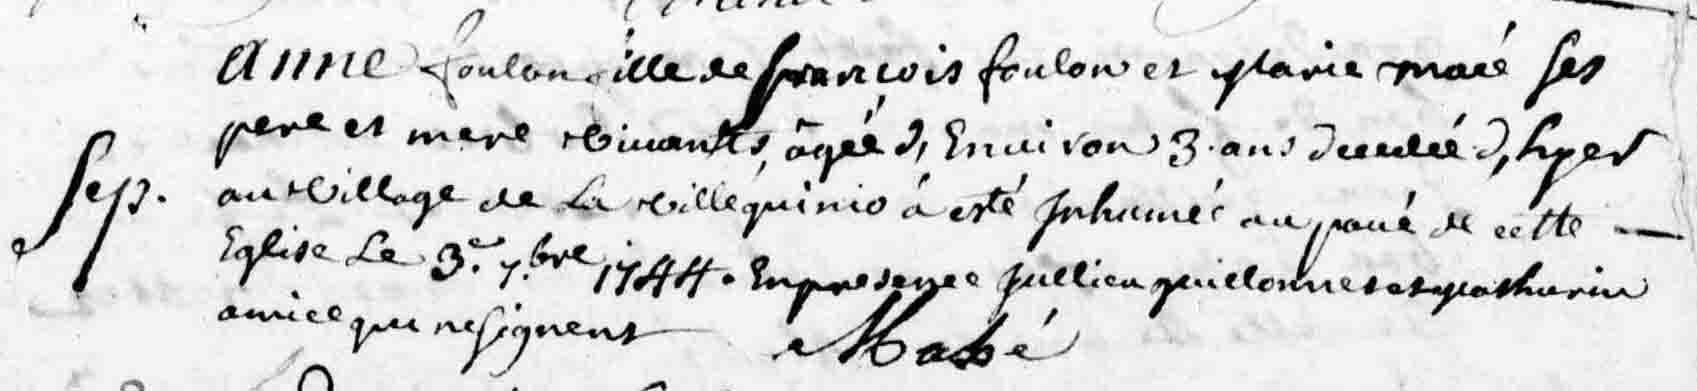 Anne foulon fille de françois foulon et Marie macé ses
pere et mere vivants, âgéé d, Environ 3. ans decedéé d, hyer
Sep.
au village de La villéquinio á esté Jnhumeé au paué de cette —
Eglise Le 3.e 7.bre 1744. En presence Jullien guillonnet et Mathurin
amice qui ne signent
Mahé